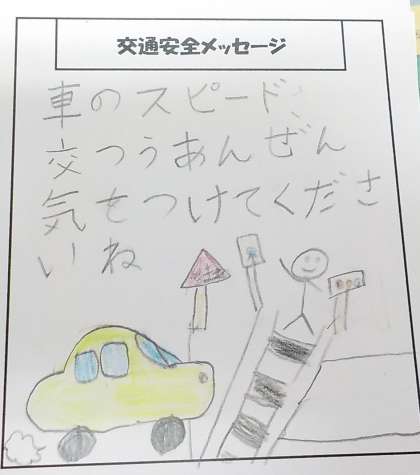 交通安全メッセージ
車のスピード、
交つうあんぜん
気をつけてくださ
いね